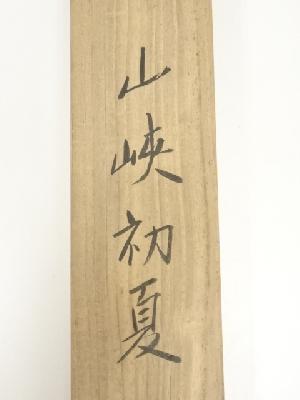 山峡初夏